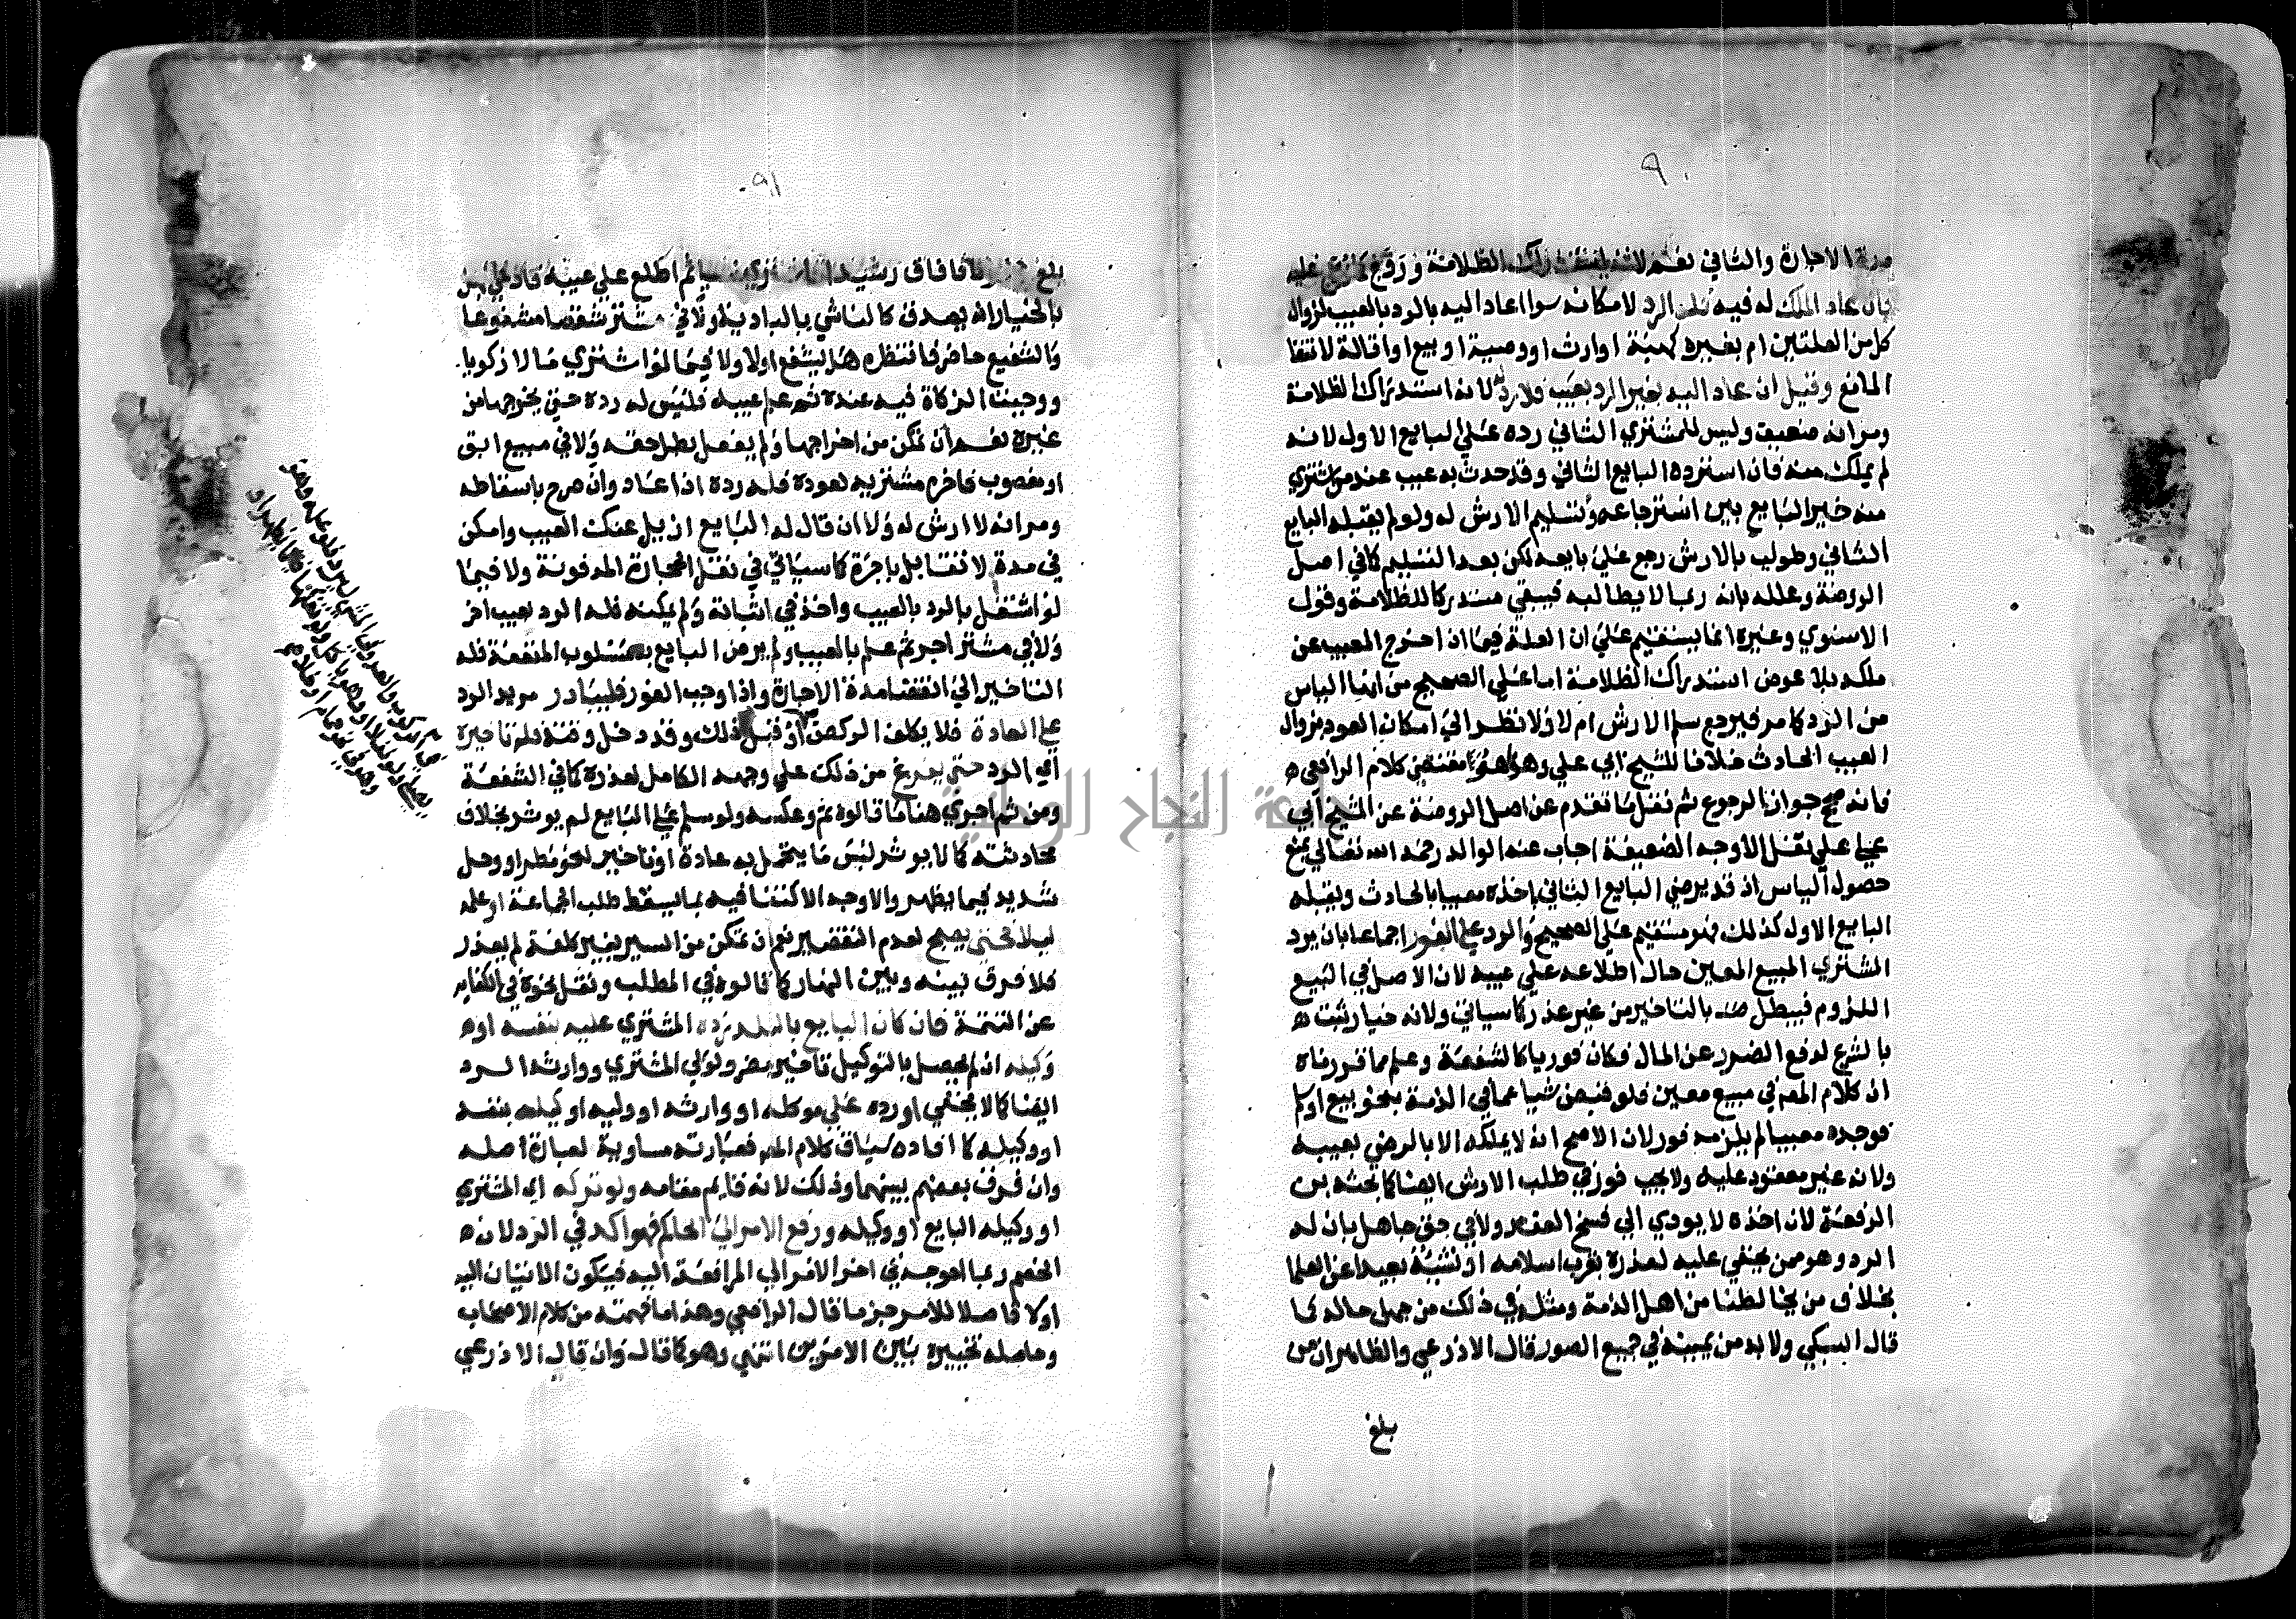 ٩٠
مدة الاجارة والثاني نعم لانه استدرك الظلامة وروج كما روج عليه
بان عاد الملك له فيه فله الرد لامكانه سوا اعاد اليه بالرد بالعيب لزوال
كل من العلتين ام بغيره كهبة او ارث او وصية او بيع او اقالة لانتفا
المانع وقيل ان عاد اليه بغير الرد بعيب فلا رد لانه استدراك الظلامة
ومر انه ضعيف وليس للمشتري الثاني رده على البايع الاول لانه
لم يملك منه فان استرده البايع الثاني وقد حدث به عيب عند من اشترى
منه خير البايع بين استرجاعه وتسليم الارش له ولو لم يقبله البايع
الثاني وطولب بالارش رجع على بايعه لكن بعد التسليم كما في اصل
الروضة وعلله بانه ربما لا يطالبه فيبقى مستدركا للظلامة وقول
الاسنوي وغيره انما يستقيم على ان العلة فيما ان اخرج المعيب عن
ملكه بلا عوض استدراك الظلامة اما على الصحيح من انها الياس
من الرد كما مر فيرجع سلم الارش ام لا ولا نظر الى امكان العود بزوال
العيب الحادث خلافا للشيخ ابي علي وهو مقتضى كلام الرافعي ه
فانه صحح جواز الرجوع ثم نقل ما تقدم عن اصل الروضة عن الشيخ ابي
علي على نقل الاوجه الضعيفة اجاب عنه الوالد رحمه الله تعالى بمنع
حصول الياس اذ قد يرضى البايع الثاني باخذه معيبا بالحادث ويقبله
البايع الاول كذلك فهو مستقيم على الصحيح والرد على الفور اجماعا بان يرد
المشتري المبيع المعين حال اطلاعه على عيبه لان الاصل في البيع
اللزوم فيبطل بالتاخير من غير عذر كما سياتي ولانه خيار ثبت ه
بالشرع لدفع الضرر عن المال فكان فوريا كالشفعة وعلم مما قررناه
ان كلام المص في مبيع معين فلو قبض شيا عما في الذمة بنحو بيع او سلم
فوجده معيبا لم يلزمه فور لان الاصح انه لا يملكه الا بالرضى بعيبه
ولانه غير معقود عليه ولا يجب فور في طلب الارش ايضا كما بحثه بن
الرفعة لان اخذه لا يودي الى فسخ العقد ولا في حق جاهل بان له
الرد وهو ممن يخفى عليه لعذره بقرب اسلامه او نشئه بعيدا عن العلما
بخلاف من يخالطنا من اهل الذمة ومثله في ذلك من جهل حاله كما
قال السبكي ولا بد من يمينه في جميع الصور قال الاذرعي والظاهر ان من
بلغ
٩١
بلغ مجنونا فافاق رشيدا فاشترى شيا ثم اطلع على عيبه فادعى الجهل
بالخيار انه يصدق كالناشي بالبادية ولا في مشتر شقصا مشفوعا
والشفيع حاضر فانتظره هل يشفع اولا ولا فيما لو اشترى مالا زكويا
ووجبت الزكاة فيه عنده ثم علم عيبه فليس له رده حتى يخرجها من
غيره نعم ان تمكن من اخراجها ولم يفعل بطل حقه ولا في مبيع ابق
او مغصوب فاخره مشتريه لعوده فله رده اذا عاد وان صرح باسقاطه
ومر انه لا ارش له ولا ان قال له البايع ازيل عنك العيب وامكن
في مدة لا تقابل باجرة كما سياتي في نقل الحجارة المدفونة ولا فيما
لو اشتغل بالرد بالعيب واخذ في اثباته ولم يمكنه فله الرد بعيب اخر
ولا في مشتر اجر ثم علم بالعيب ولم يرض البايع به مسلوب المنفعة فله
التاخير الى انقضا مدة الاجارة واذا وجب الفور فليبادر مريد الرد
على العادة فلا يكلف الركض او قبل ذلك وقد دخل وقته فله تاخيره
اي الرد حتى يفرغ من ذلك على وجهه الكامل لعذره كما في الشفعة
ومن ثم اجرى هنا ما قالوه ثم وعكسه ولو سلم على البايع لم يوثر بخلاف
محادثته كما لا يوثر لبس ما يتجمل به عادة او تاخير لنحو مطر او وحل
شديد فيما يظهر والاوجه الاكتفا فيه بما يسقط طلب الجماعة او علمه
ليلا فحتى يصبح لعدم التقصير نعم ان تمكن من السير بغير كلفة لم يعذر
فلا فرق بينه وبين النهار كما قالوه في المطلب ونقل نحوه في الكفاية
عن التتمة فان كان البايع بالبلد رده المشتري عليه بنفسه او ه
وكيله ان لم يحصل بالتوكيل تاخير مضر ولولي المشتري ووارثه الرد
ايضا كما لا يخفى او رده على موكله او وارثه او وليه او وكيله بنفسه
او وكيله كما افاده سياق كلام المص فعبارته مساوية لعبارة اصله
وان فرق بعضهم بينهما وذلك لانه قايم مقامه ولو تركه اي المشتري
او وكيله البايع او وكيله ورفع الامر الى الحاكم فهو اكد في الرد لان ه
الخصم ربما احوجه في اخر الامر الى المرافعة اليه فيكون الاتيان اليه
اولا فاصلا للامر جزما قال الرافعي وهذا ما فهمته من كلام الاصحاب
وحاصله تخييره بين الامرين انتهى وهو كما قال وان قال الاذرعي
جامعة النجاح الوطنية